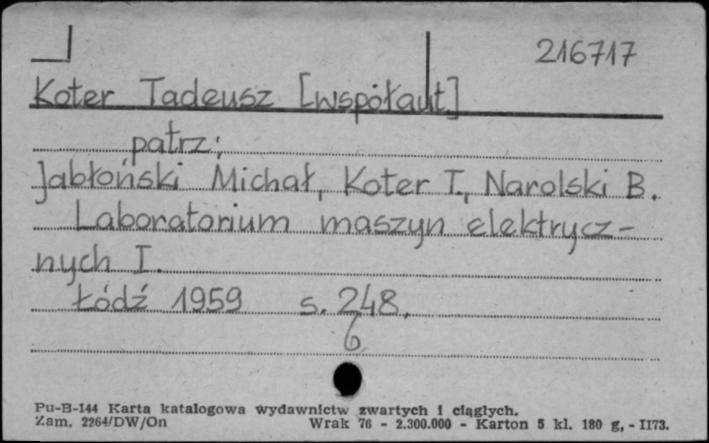 216717
Koter Tadeusz [współaut.]
patrz:
Jabłoński Michał, Koter T., Narolski B.
Laboratorium maszyn elektrycz-
nych I.
Łódź 1959 s. 248.
6
Pu-B-144 Karta katalogowa wydawnictw zwartych i ciągłych.
Zam. 2264/DW/On Wrak 76 - 2.300.000 - Karton 5 kl. 180 g, - II73.